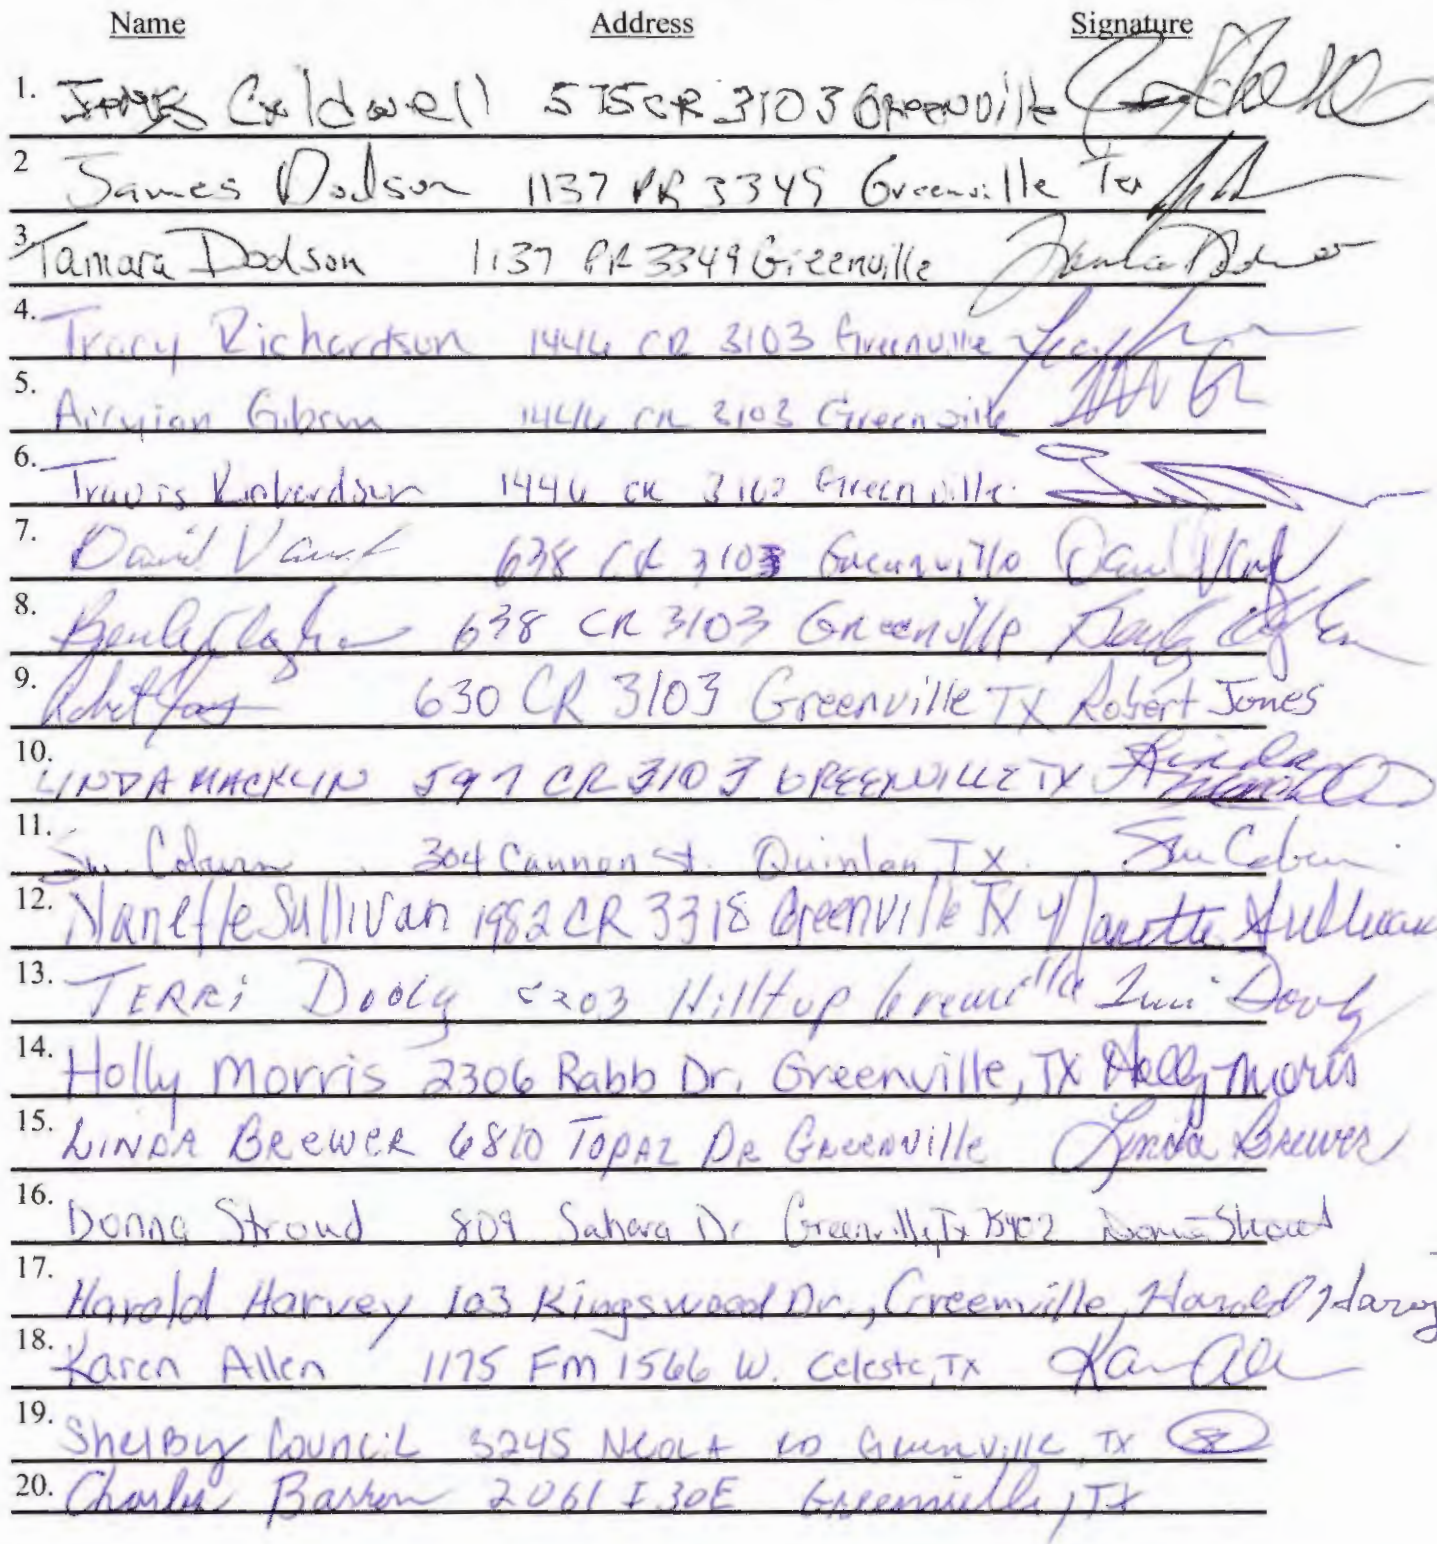 Name Address Signature
1. James Caldwell 575 CR 3103 Greenville
2 James Dodson 1137 PR 3349 Greenville Tex
3. Tamara Dodson 1137 PR 3349 Greenville Tamara Dodson
4. Tracy Richardson 1446 CR 3103 Greenville
5. Gibson 1446 CR 3103 Greenville
6. Travis Richardson 1446 CR 3103 Greenville
7. David 638 CR 3103 Greenville David
8. 638 CR 3103 Greenville
9. Robert Jones 630 CR 3103 Greenville TX Robert Jones
10. LINDA MACKLIN 597 CR 3103 GREENVILLE TX Linda Macklin
11. Sue Coburn 304 Cannon St. Quinlan, TX. Sue Coburn
12. Nanette Sullivan 1982 CR 3318 Greenville TX Nanette Sullivan
13. TERRi Dooly 5203 Hilltop Greenville Terri Dooly
14. Holly Morris 2306 Rabb Dr. Greenville, TX Holly Morris
15. LINDA BREWER 6810 TOPAZ DR GREENVILLE Linda Brewer
16. Donna Stroud 809 Sahara Dr Greenville, Tx 75402 Donna Stroud
17. Harold Harvey 103 Kingswood Dr., Greenville, Harold Harvey
18. Karen Allen 1175 Fm 1566 W. Celeste, TX Karen Allen
19. Shelby Council 3245 Greenville TX
20. Charles Barron 2061 I30E Greenville, TX